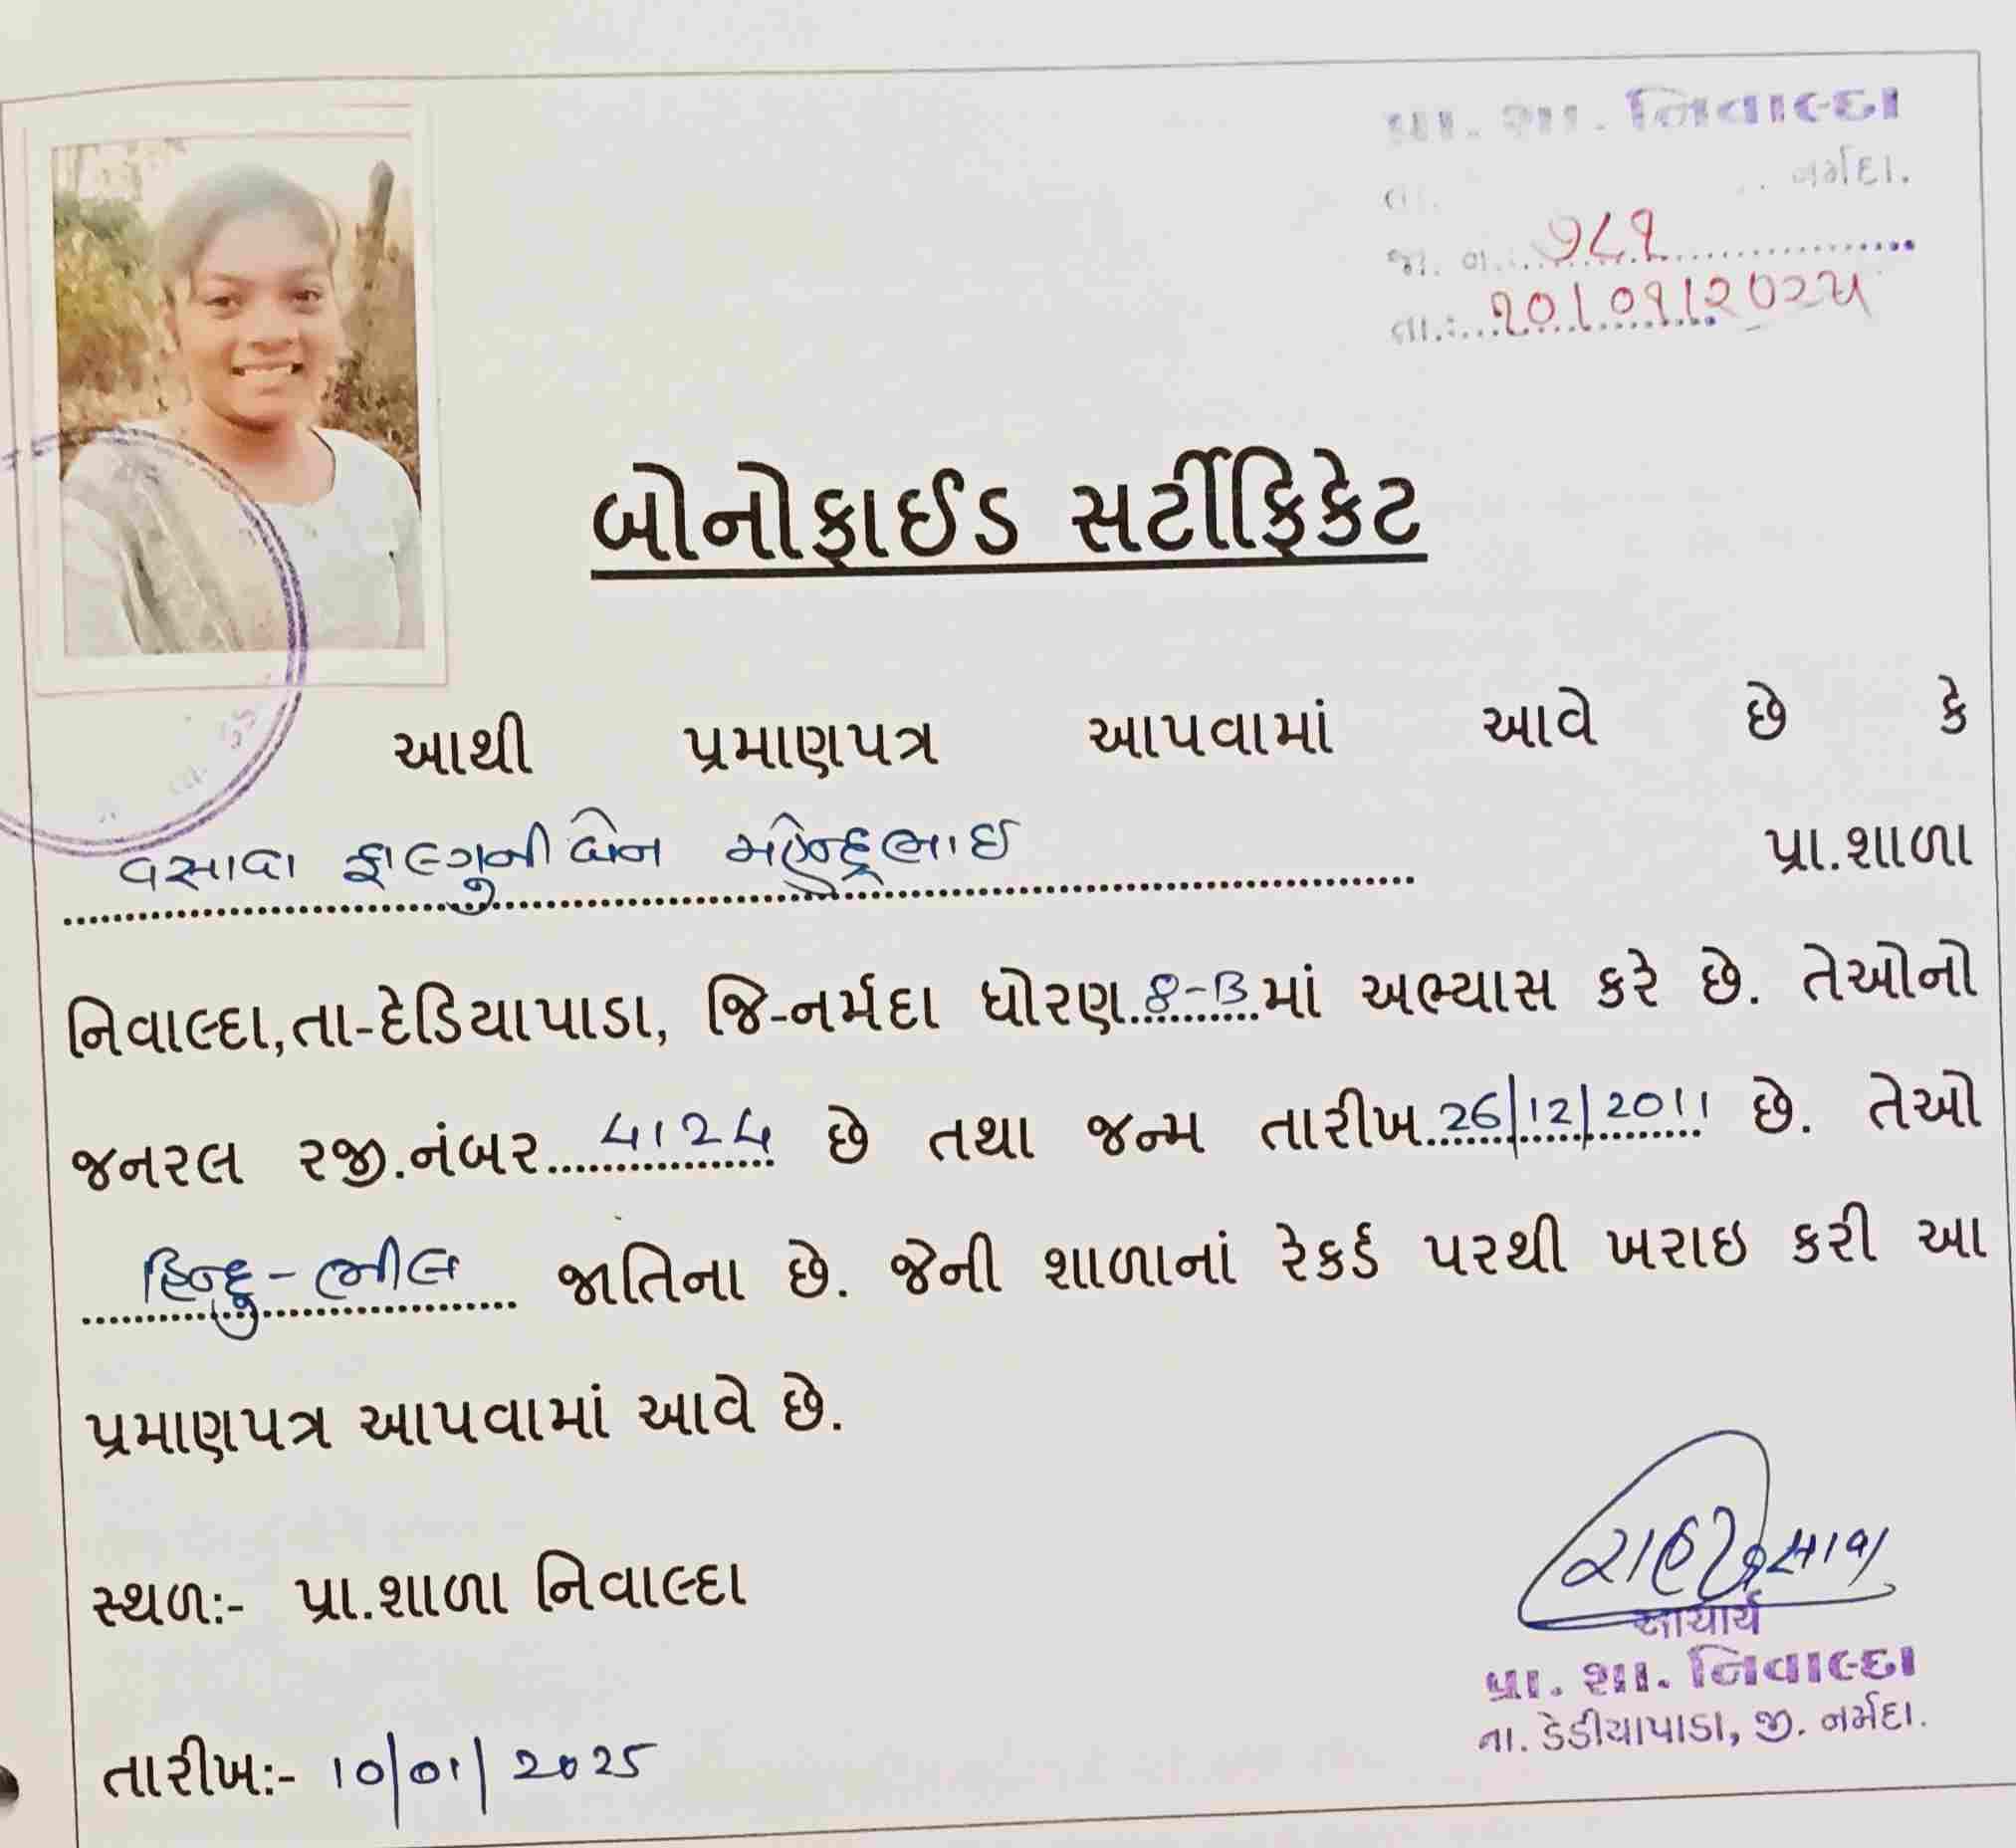 પ્રા. શા. નિવાલ્દા
નર્મદા.
જા. નં. ૭૮૧
તા.: ૧૦/૦૧/૨૦૨૫
બોનોફાઈડ સર્ટીફિકેટ
આથી પ્રમાણપત્ર આપવામાં આવે છે કે
વસાવા ફાલ્ગુનીબેન મહેન્દ્રભાઇ પ્રા.શાળા
નિવાલ્દા,તા-દેડિયાપાડા, જિ-નર્મદા ધોરણ 8-B માં અભ્યાસ કરે છે. તેઓનો
જનરલ રજી.નંબર 4124 છે તથા જન્મ તારીખ 26/12/2011 છે. તેઓ
હિન્દુ-ભીલ જાતિના છે. જેની શાળાનાં રેકર્ડ પરથી ખરાઇ કરી આ
પ્રમાણપત્ર આપવામાં આવે છે.
સ્થળ:- પ્રા.શાળા નિવાલ્દા
આચાર્ય
પ્રા. શા. નિવાલ્દા
તા. ડેડીયાપાડા, જી. નર્મદા.
તારીખ:- 10/01/2025